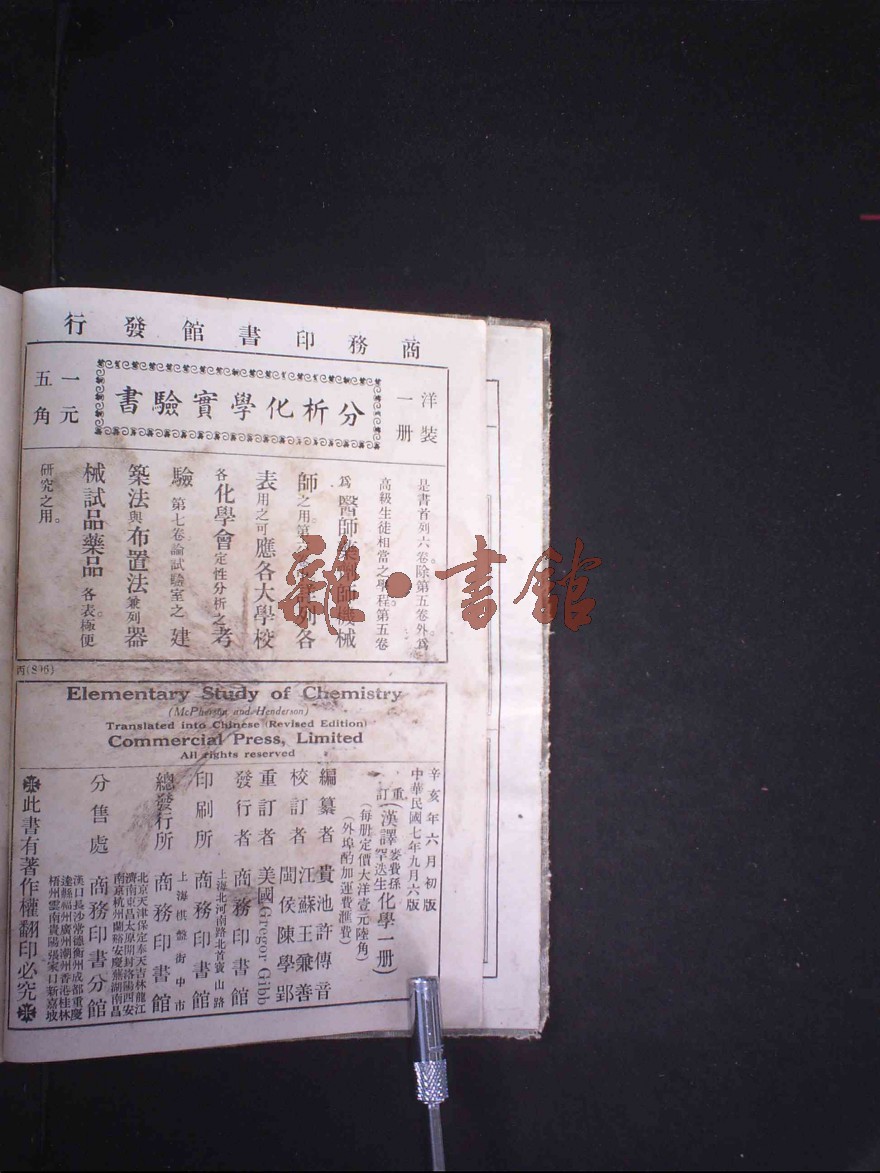 商務印書館發行
洋裝一册
分析化學實驗書
一元五角
是書首列六卷。除第五卷外。爲
高級生徒相當之學程。第五卷
爲醫師藥劑師機械
師之用。第列各
表用之可應各大學校
各化學會定性分析之考
驗 第七卷論試驗室之建
築法與布置法兼列器
械試品藥品 各表。極便
研究之用。
丙(896)
Elementary Study of Chemistry
(McPherson and Henderson)
Translated into Chinese (Revised Edition)
Commercial Press, Limited
All rights reserved
辛亥年六月初版
中華民國七年九月六版
重訂(漢譯麥費孫罕迭生化學一册)
(每册定價大洋壹元陸角)
(外埠酌加運費匯費)
編纂者 貴池許傳音
校訂者 江蘇王兼善
閩侯陳學郢
重訂者 美國Gregor Gibb
發行者 商務印書館
上海北河南路北首寶山路
印刷所 商務印書館
上海棋盤街中市
總發行所 商務印書館
北京天津保定奉天吉林龍江
濟南東昌太原開封洛陽西安
南京杭州蘭谿安慶蕪湖南昌
分售處 商務印書分館
漢口長沙常德衡州成都重慶
達縣福州廣州潮州香港桂林
梧州雲南貴陽張家口新嘉坡
此書有著作權翻印必究
龍·書館